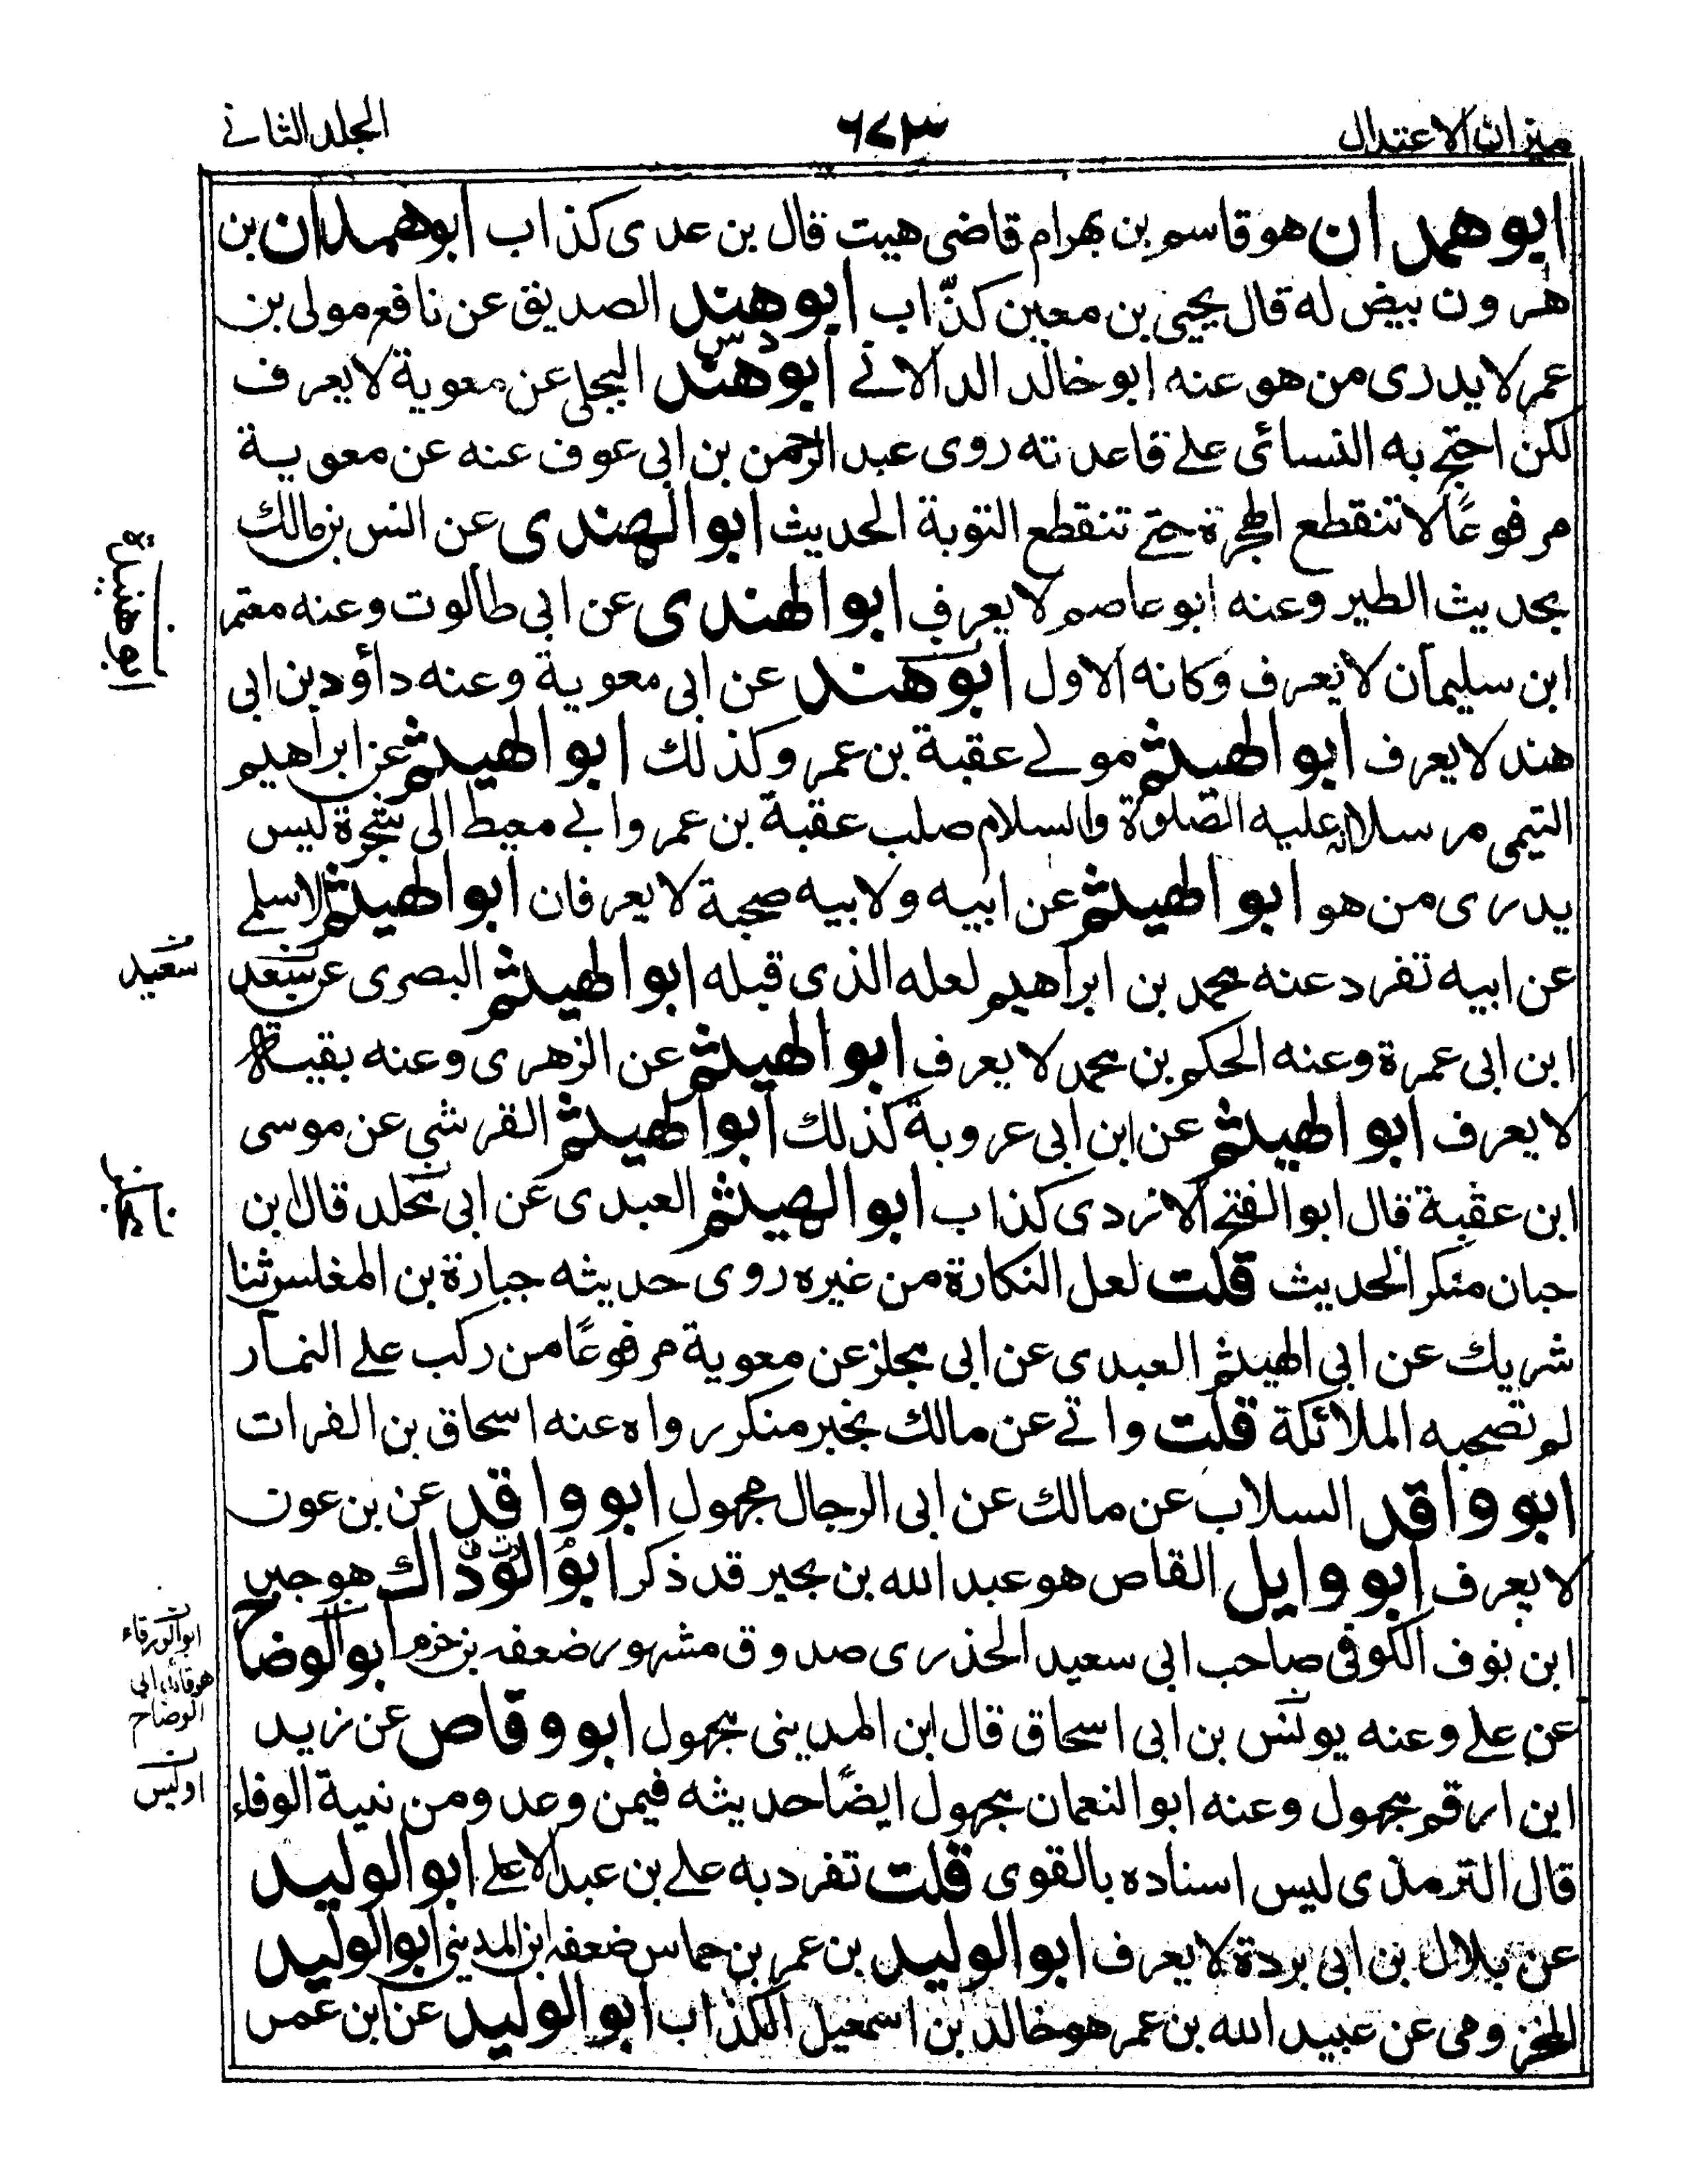 ميزان الاعتدال
٦٧٣
المجلد الثانى
ابو همدان هو قاسم بن بهرام قاضى هيت قال بن عدى كذاب ابو همدان بن
هرون بيض له قال يحيى بن معين كذّاب ابو هند الصديق عن نافع مولى بن
عمر لا يدرى من هو عنه ابو خالد الدالانے ابو هند البجلى عن معوية لا يعرف
دس
لكن احتج به النسائى علے قاعدته روى عبد الرحمن بن ابى عوف عنه عن معوية
مرفوعًا لا تنقطع الهجرة حتے تنقطع التوبة الحديث ابو الهندى عن انس بن مالك
بحديث الطير وعنه ابو عاصم لا يعرف ابو الهندى عن ابى طالوت وعنه معتمر
ابن سليمان لا يعرف وكانه الاول ابو هند عن ابى معوية وعنه داؤد بن ابى
هند لا يعرف ابو الهيثم مولے عقبة بن عمر وكذلك ابو الهيثم عن ابراهيم
التيمى مرسلا انه عليه الصلوة والسلام صلب عقبة بن عمر وابے معيط الى شجرة ليس
يدرى من هو ابو الهيثم عن ابيه ولابيه صحبة لا يعرفان ابو الهيثم الاسلمے
عن ابيه تفرد عنه محمد بن ابراهيم لعله الذى قبله ابو الهيثم البصرى عن سعد
سعيد
ابن ابى عمرة وعنه الحكم بن محمد لا يعرف ابو الهيثم عن الزهرى وعنه بقية
لا يعرف ابو الهيثم عن ابن ابى عروبة كذلك ابو الهيثم القرشى عن موسى
ابن عقبة قال ابو الفتح الازدى كذاب ابو الهيثم العبدى عن ابى مخلد قال ابن
حبان منكر الحديث قلت لعل النكارة من غيره روى حديثه جبارة بن المغلس ثنا
شريك عن ابى الهيثم العبدى عن ابى مجلز عن معوية مرفوعًا من ركب علے النمار
لم تصحبه الملائكة قلت واتے عن مالك بخبر منكر رواه عنه اسحاق بن الفرات
ابو واقد السلاب عن مالك عن ابى الرجال مجهول ابو واقد عن بن عون
لا يعرف ابو وايل القاص هو عبد الله بن بجير قد ذكر ابو الودّاك هو جبر
ابن نوف الكوفى صاحب ابى سعيد الخدرى صدوق مشهور ضعفه بن حزم ابو الوضاح
ابو الورقاء
الوضاح
عن علے وعنه يونس بن ابى اسحاق قال ابن المدينى مجهول ابو وقاص عن زيد
اوليس
ابن ارقم مجهول وعنه ابو النعمان مجهول ايضًا حديثه فيمن وعد ومن نيية الوفاء
قال الترمذى ليس اسناده بالقوى قلت تفرد به علے بن عبد الاعلے ابو الوليد
عن بلال بن ابى بردة لا يعرف ابو الوليد بن عمر بن حماس ضعفه ابن المدينى ابو الوليد
المخزومى عن عبيد الله بن عمر هو خالد بن اسمعيل الكذاب ابو الوليد عن ابن عمر